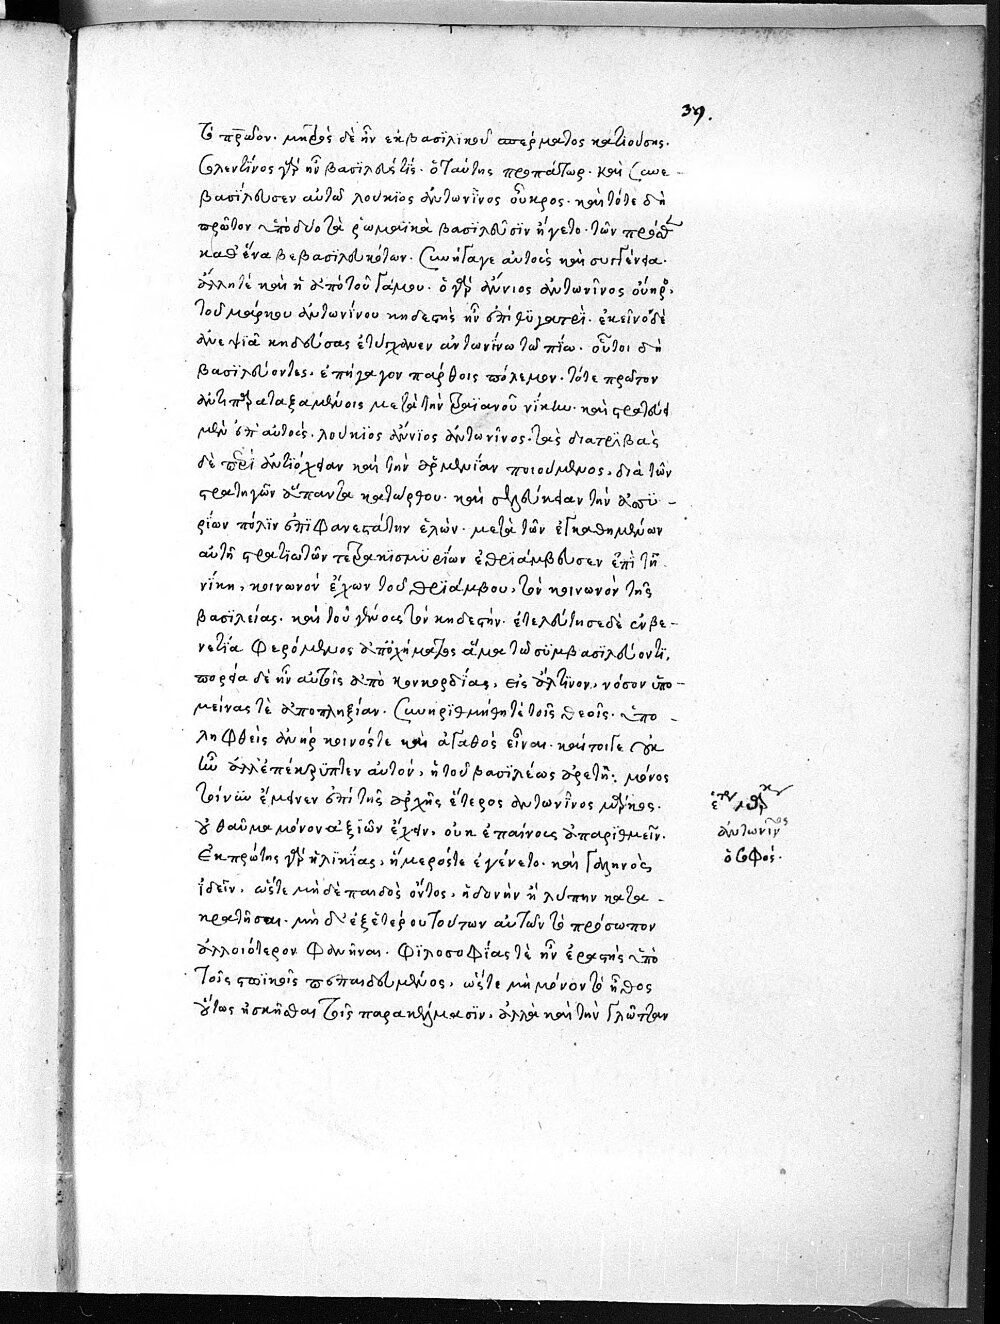 39.
τὸ πρῶτον. μητρὸς δὲ ἦν ἐκ βασιλικοῦ σπέρματος κατιούσης.
σολεντῖνος γὰρ ἦν βασιλεύς τις. ὁ ταύτης προπάτωρ. καὶ συνε-
βασίλευσεν αὐτῶ λούκιος ἀντωνῖνος οὖκρος. καὶ τότε δὴ
πρῶτον ὑπὸ δύο τὰ ῥωμαϊκὰ βασιλεῦσιν ἤγετο. τῶν πρόσθεν
καθ' ἕνα βεβασιλευκότων. συνήγαγε αὐτοὺς καὶ συγγένεια.
ἄλλη τε καὶ ἡ ἀπὸ τοῦ γάμου. ὁ γὰρ ἄννιος ἀντωνῖνος οὐῆρος,
τοῦ μάρκου ἀντωνίνου κηδεστὴς ἦν ἐπὶ θυγατρί. ἐκεῖνος δὲ
ἀνεψιᾶ κηδεύσας ἐτύγχανεν ἀντωνίνω τῶ πίω. οὗτοι δὴ
βασιλεύοντες, ἐπήγαγον πάρθοις πόλεμον. τότε πρῶτον
ἀντιπαραταξαμένοις μετὰ τὴν τραϊανοῦ νίκην. καὶ στρατεύει
μὲν ἐπ' αὐτοὺς. λούκιος ἄννιος ἀντωνῖνος. τὰς διατριβὰς
δὲ περὶ ἀντιόχειαν καὶ τὴν ἀρμενίαν ποιούμενος, διὰ τῶν
στρατηγῶν ἅπαντα κατώρθου. καὶ σελεύκειαν τὴν ἀσσυ-
ρίων πόλιν ἐπιφανεστάτην ἑλών. μετὰ τῶν ἐγκαθημένων
αὐτῆ στρατιωτῶν τετρακισμυρίων ἐθριάμβευσεν ἐπὶ τῆ
νίκη, κοινωνὸν ἔχων τοῦ θριάμβου, τὸν κοινωνὸν τῆς
βασιλείας. καὶ τοῦ γένους τὸν κηδεστήν. ἐτελεύτησε δὲ ἐν βε-
νετία φερόμενος ἀπ' ὀχήματος ἅμα τῶ συμβασιλεύοντι,
πορεία δὲ ἦν αὐτοῖς ἀπὸ κονκορδίας, εἰς ἄλτινον, νόσον ὑπο-
μείνας τὲ ἀποπληξίαν. συνηριθμήθη τὲ τοῖς θεοῖς. ὑπο-
ληφθεὶς ἀνὴρ κοινός τε καὶ ἀγαθὸς εἶναι. καίτοιγε οὐκ
ἦν ἀλλ' ἐπέκρυπτεν αὐτόν, ἡ τοῦ βασιλέως ἀρετή: μόνος
τοίνυν ἔμεινεν ἐπὶ τῆς ἀρχῆς ἕτερος ἀντωνῖνος μάρκος.
οὗ θαῦμα μόνον ἀξιῶν ἔχειν, οὐκ ἐπαίνοις ἀπαριθμεῖν.
Ἐκ πρώτης γὰρ ἡλικίας, ἥμερός τε ἐγένετο. καὶ γαληνὸς
ἰδεῖν, ὥστε μὴ δὲ παιδὸς ὄντος, ἡδονὴν ἢ λύπην κατα-
κρατῆσαι. μὴ δ' ἐξ ἑτέρου τούτων αὐτῶν τὸ πρόσωπον
ἀλλοιότερον φανῆναι. φιλοσοφίας τὲ ἦν ἐραστὴς ὑπὸ
τοῖς στωϊκοῖς πεπαιδευμένος, ὥστε μὴ μόνον τὸ ἦθος
οὕτως ἠσκῆσθαι τοῖς παραγγέλμασιν, ἀλλὰ καὶ τὴν γλῶτταν
ἀντωνῖνος
ὁ σοφός.